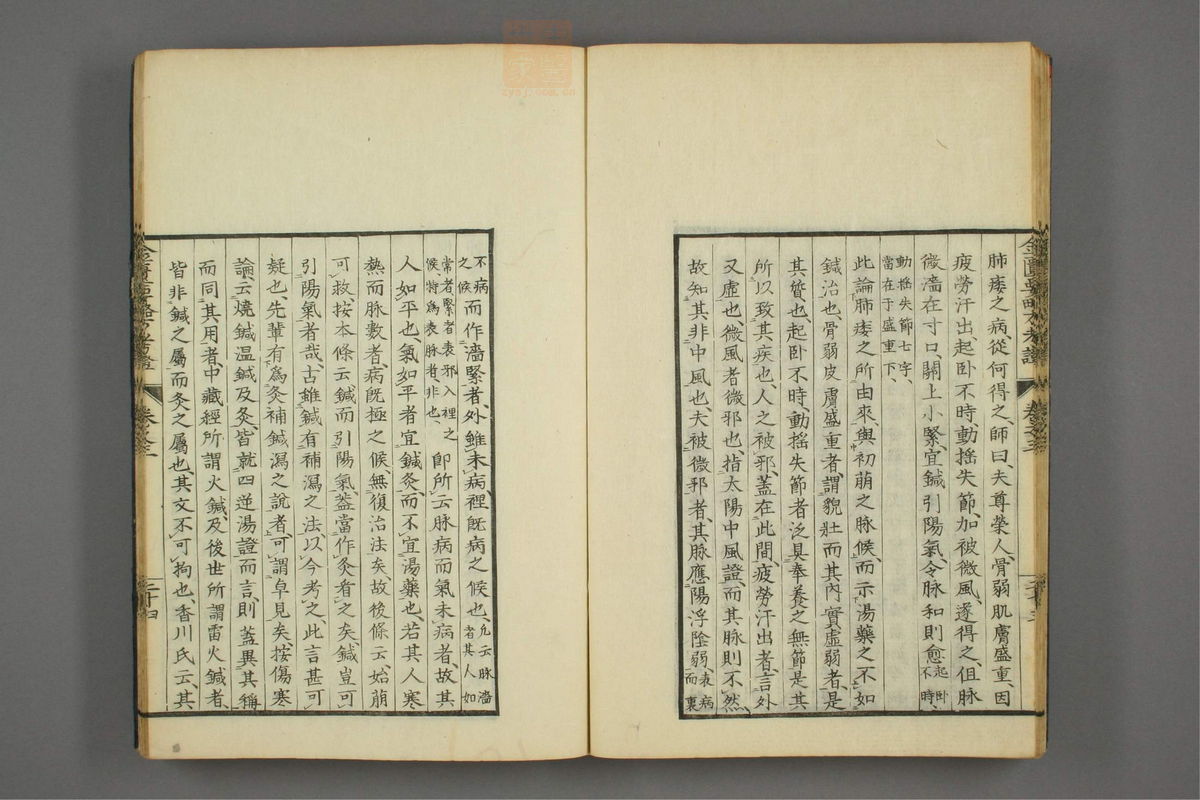 肺痿之病、從何得之、師曰、夫尊榮人、骨弱肌膚盛重、因
疲勞汗出、起卧不時、動揺失節、加被微風、遂得之、但脉
微濇在寸口、關上小緊、宜鍼引陽氣、令脉和則愈、起卧不時、
動揺失節七字、當在于盛重下、
此論肺痿之所由來、與初萠之脉候、而示湯藥之不如
鍼治也、骨弱皮膚盛重者、謂貌壯而其內實虛弱者、是
其質也、起卧不時、動揺失節者、泛具奉養之無節、是其
所以致其疾也、人之被邪、葢在此間、疲勞汗出者、言外
又虛也、微風者微邪也、指太陽中風證、而其脉則不然、
故知其非中風也、夫被微邪者、其脉應陽浮陰弱、表病而裏
不病之候、而作濇緊者、外雖未病、裡旣病之候也、尤云脉濇者其人如
常者、緊者表邪入裡之候、特爲表脉者、非也、卽所云脉病而氣未病者、故其
人如平也、氣如平者宜鍼灸、而不宜湯藥也、若其人寒
熱而脉數者、病旣極之候、無復治法矣、故後條云、始萠
可救、按本條云鍼而引陽氣、葢當作灸者之矣、鍼豈可
引陽氣者哉、古雖鍼有補瀉之法、以今考之、此言甚可
疑也、先輩有爲灸補鍼瀉之說者、可謂卓見矣、按傷寒
論、云燒鍼温鍼及灸、皆就四逆湯證而言、則葢異其稱
而同其用者、中藏經所謂火鍼、及後世所謂雷火鍼者、
皆非鍼之屬而灸之屬也、其文不可拘也、香川氏云、其